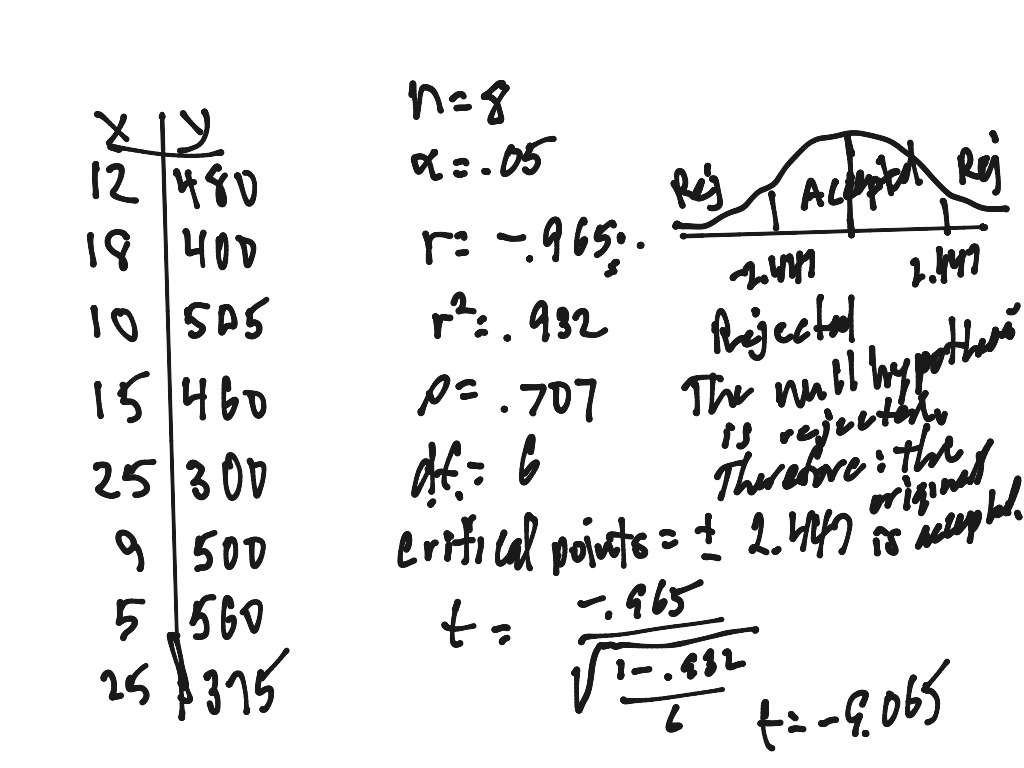 x y
12 480
18 400
10 505
15 460
25 300
9 500
5 560
25 375
n = 8
α = .05
r = -.965
r² = .932
ρ = .707
df = 6
critical points = ± 2.447
t = -.965
√ 1 - .932
6
t = -9.065
Rej Rej
-2.447 2.447
Rejected
The null hypothesis
is rejected.
Therefore: the
original
is accepted.